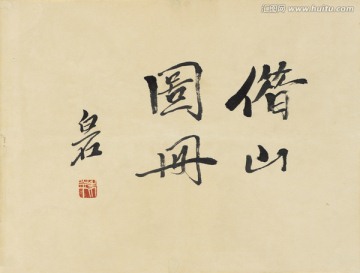 借山
圖冊
白石
www.huitu.com